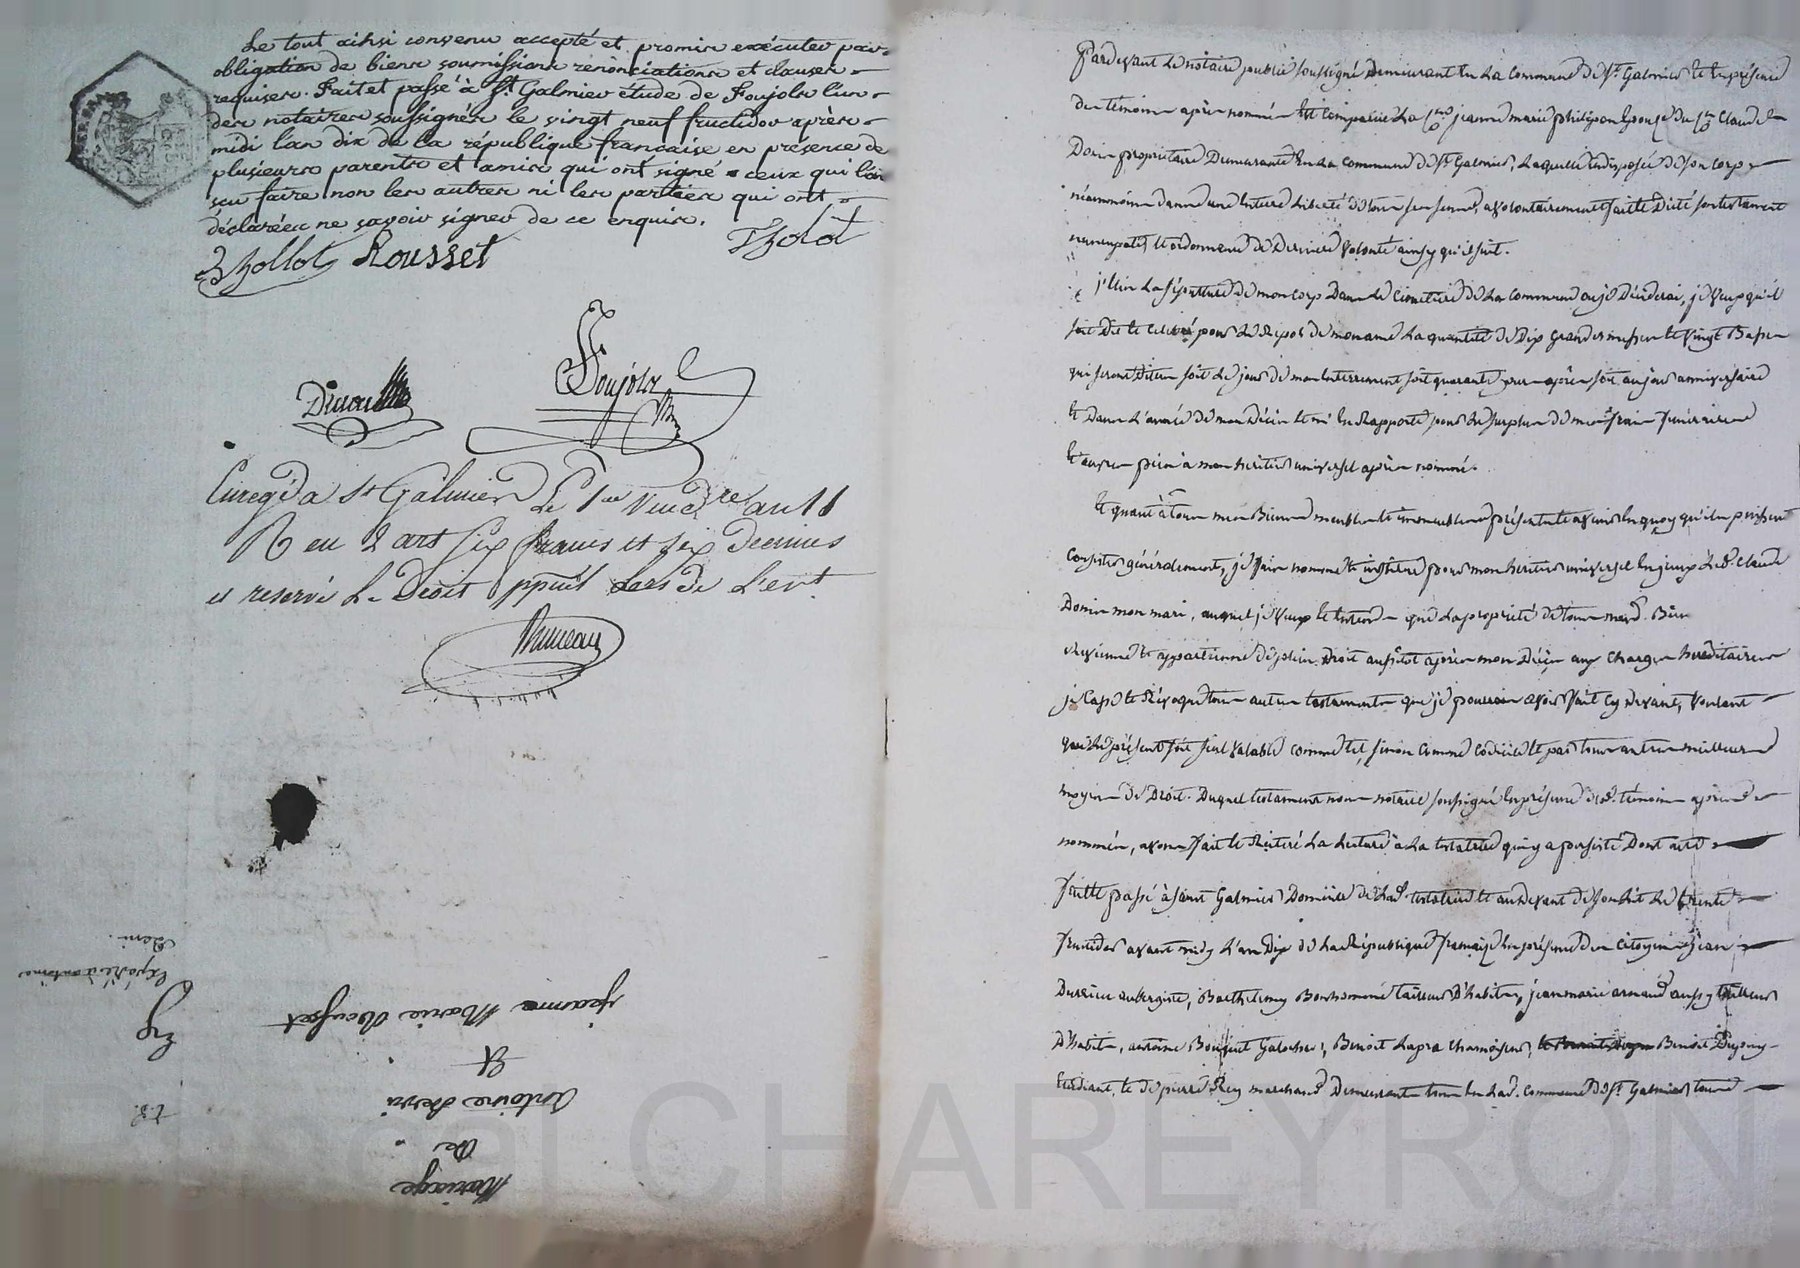 Le tout ainsi convenu accepté et promis exécuter par
obligation de biens soumissions rénonciations et clauses
requises. Fait et passé à St Galmier étude de Foujols l'un
des notaires soussignés le vingt neuf fructidor après
midi l'an dix de la république française en présence de
plusieurs parents et amis qui ont signé ceux qui l'on
scu faire non les autres ni les parties qui ont
déclarées ne savoir signer de ce enquis.
Thollot Rousset Thollot
Foujols
Enregé a St Galmier Le 1er Vendre an 11
R eu 2 art six francs et six Decimes
et reservé Le Droit Lors de L'evt
Bruneau
Mariage
De
Antoine
Et
Jeanne Marie Rousset
Expédié à antoine
Pardevant Le notaire public soussigné Demeurant En La Commune de St Galmier Et En présence
des témoins après nommés Est Comparue La jeanne marie philipon Epouse du Claude
Dorin propriétaire Demeurante En La Commune de St Galmier, Laquelle indisposée de son Corps
néammoins dans une Entière Liberté de tous ses sens, a volontairement fait Et Dicté son testament
nuncupatif, Et ordonnance de Dernière volonté ainsy qu'il suit.
j'Elis La sépulture de mon Corps Dans Le Cimetière de La Commune ou je Décederai, je veux qu'il
soit Dit Et Celebré pour Le Repos de mon ame La quantité de Dix Grandes messes Et vingt Basses
qui seront Dites soit Le jour de mon Enterrement soit quarante jours après soit au jour anniversaire
Et Dans L'année de mon Décès Et m'En Rapporte pour Le surplus de mes frais funéraires
Et œuvres pies à mon héritier universel après nommé.
Et quant à tous mes Biens meubles Et immeubles présents Et avenir En quoy qu'ils puissent
Consister généralement, je fais nomme Et institue pour mon héritier universel Claude
Dorin mon mari, auquel je veux Et Entend que La propriété de tous mesd. Biens
advienne Et appartienne de plein Droit aussitôt après mon Décès aux Charges héréditaires
je Casse Et Révoque tous autres testaments que je pourrois avoir fait Cy Devant, voulant
que Le présent soit seul valable comme tel, sinon Comme Codicile Et par tous autres meilleurs
moyens de Droit. Duquel testament nous notaire soussigné En présence desd. témoins après
nommés, avons fait Et Réitéré La Lecture à La testatrice qui y a persisté Dont acte
fait Et passé à saint Galmier Domicile de Lad. testatrice Et au Devant de son Lit Le trente
fructidor avant midy L'an Dix de La République française En présence des Citoyens jean
aubergiste, Barthelemy Bonhomme tailleur D'habits, jean marie arnaud aussy tailleur
D'habits, antoine Galocher, Benoit Lapra Chamoiseur, Benoit
Etudiant, Et de pierre Rey marchand Demeurant tous En Lad. Commune de St Galmier
Pascal CHAREYRON